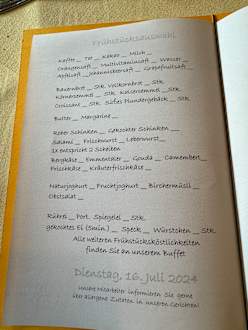 Frühstücksauswahl
Kaffee _ Tee _ Kakao _ Milch _
Orangensaft _ Multivitaminsaft _ Wasser _
Apfelsaft _ Johannisbersaft _ Grapefruitsaft _
Bauernbrot _ Stk. Vollkornbrot _ Stk.
Körnersemmel _ Stk. Kaisersemmel _ Stk.
Croissant _ Stk. Süßes Plundergebäck _ Stk.
Butter _ Margarine _
Roher Schinken _ Gekochter Schinken _
Salami _ Frischwurst _ Leberwurst _
1x entspricht 2 Scheiben
Bergkäse _ Emmentaler _ Gouda _ Camembert _
Frischkäse _ Kräuterfrischkäse _
Naturjoghurt _ Fruchtjoghurt _ Birchermüsli _
Obstsalat _
Rührei _ Port. Spiegelei _ Stk.
gekochtes Ei (5min.) _ Speck _ Würstchen _ Stk.
Alle weiteren Frühstücksköstlichkeiten
finden Sie an unserem Buffet
Dienstag, 16. Juli 2024
Unsere Mitarbeiter informieren Sie gerne
über allergene Zutaten in unseren Gerichten!